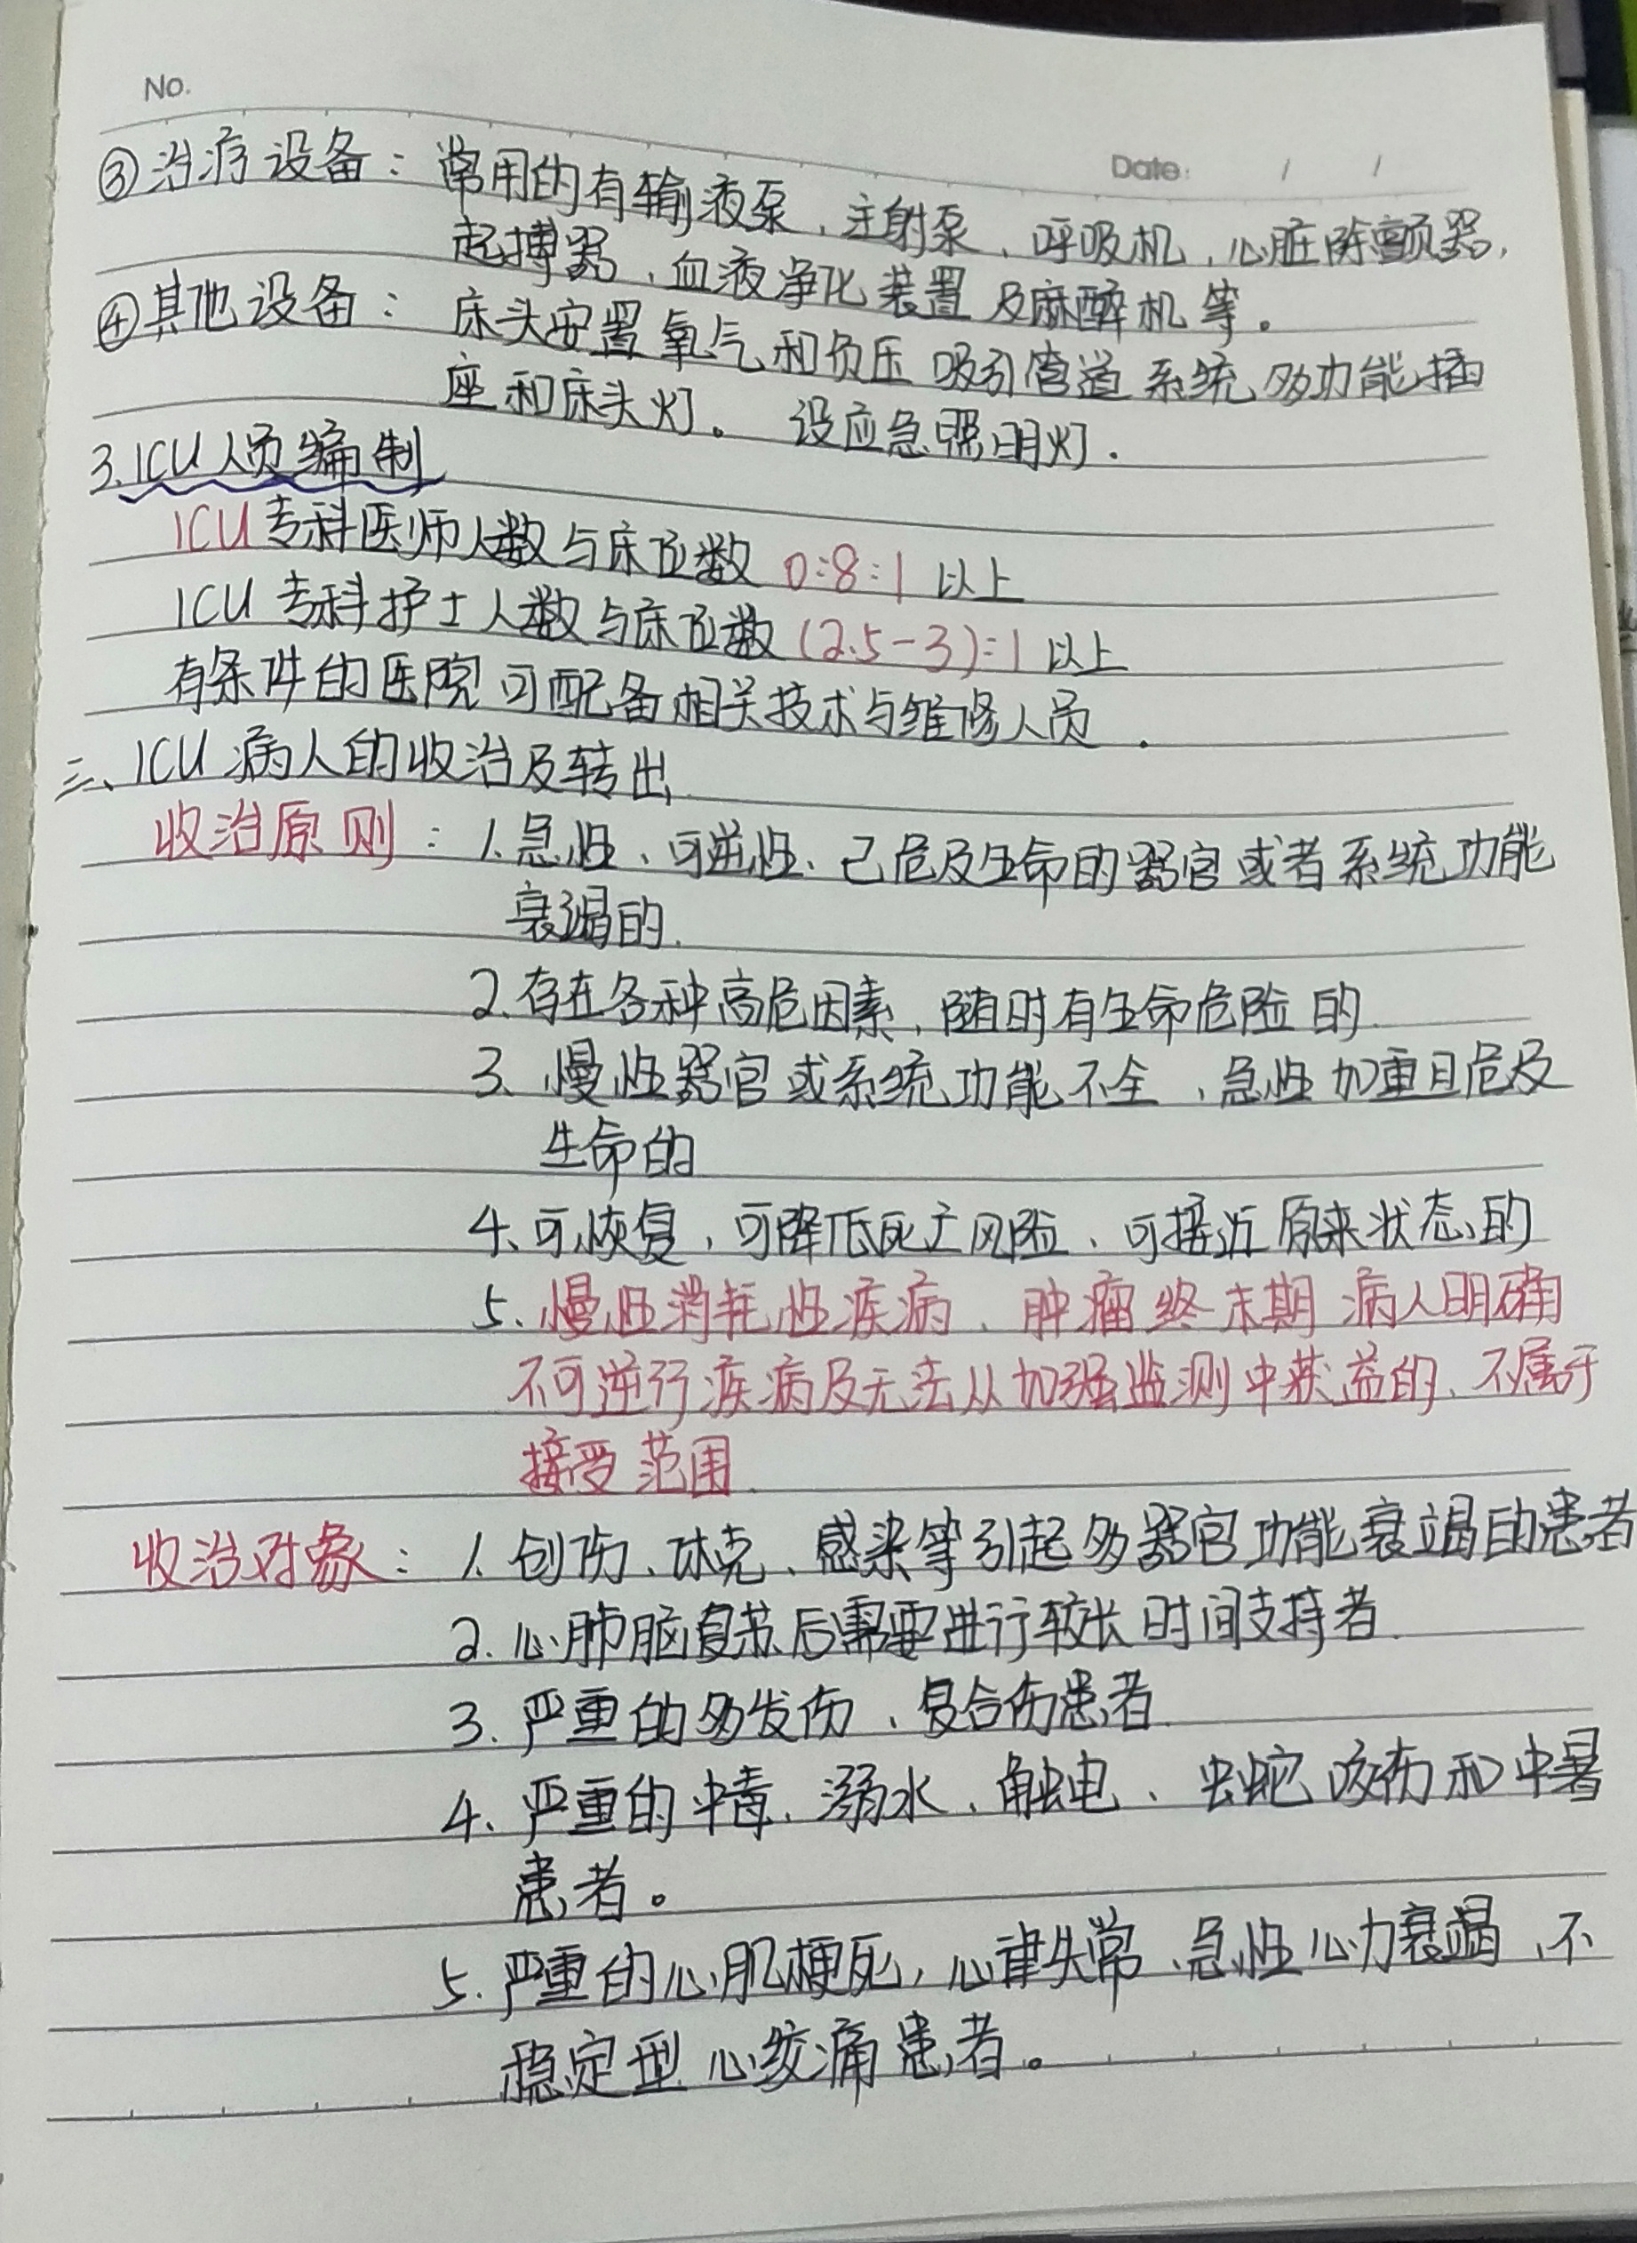 No.
Date: / /
③治疗设备：常用的有输液泵、注射泵、呼吸机、心脏除颤器,
起搏器、血液净化装置及麻醉机等。
④其他设备：床头安置氧气和负压吸引管道系统,多功能插
座和床头灯。设应急照明灯.
3.ICU人员编制
ICU专科医师人数与床位数 0:8:1 以上
ICU专科护士人数与床位数 (2.5-3):1 以上
有条件的医院可配备相关技术与维修人员.
三、ICU病人的收治及转出
收治原则：1.急性、可逆性、已危及生命的器官或者系统功能
衰竭的.
2.存在各种高危因素,随时有生命危险的.
3、慢性器官或系统功能不全、急性加重且危及
生命的
4、可恢复,可降低死亡风险、可接近原来状态的
5、慢性消耗性疾病、肿瘤终末期病人明确
不可逆行疾病及无法从加强监测中获益的、不属于
接受范围.
收治对象：1.创伤、休克、感染等引起多器官功能衰竭的患者
2.心肺脑复苏后需要进行较长时间支持者.
3.严重的多发伤、复合伤患者.
4.严重的中毒、溺水、触电、虫蛇咬伤和中暑
患者。
5.严重的心肌梗死,心律失常、急性心力衰竭、不
稳定型心绞痛患者。